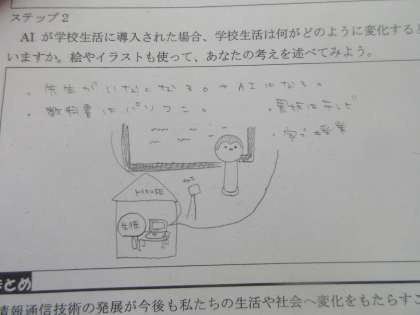 ステップ2
AIが学校生活に導入された場合、学校生活は何がどのように変化すると
いますか。絵やイラストも使って、あなたの考えを述べてみよう。
・先生がいなくなる。→AIになる。
・教科書はパソコン。
・黒板はテレビ
・家で授業
生徒
まとめ
情報通信技術の発展が今後も私たちの生活や社会へ変化をもたらすこ